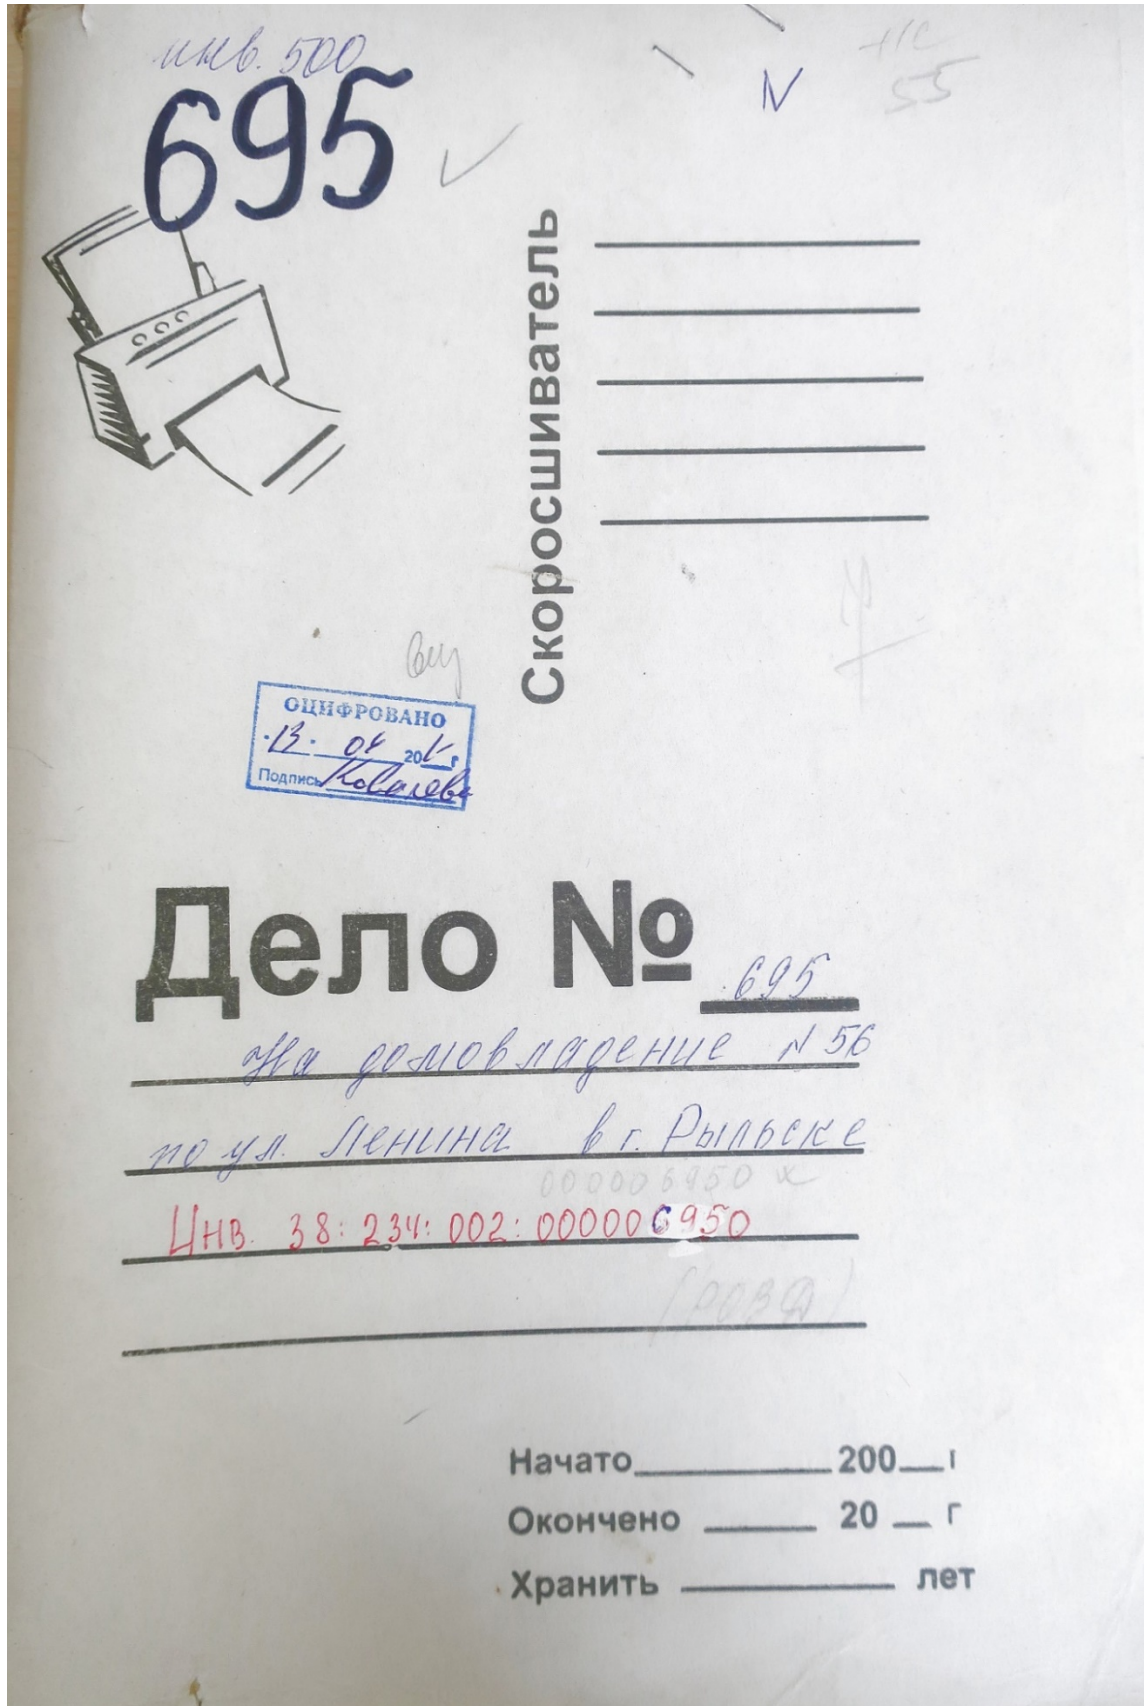 инв. 500
695
N
55
Скоросшиватель
ОЦИФРОВАНО
13. 04 20 г.
Подпись Ковалева
Дело № 695
На домовладение N 56
по ул. Ленина в г. Рыльске
000006950
Инв. 38:234:002:000006950
(РОВД)
Начато 200 г
Окончено 20 г
Хранить лет